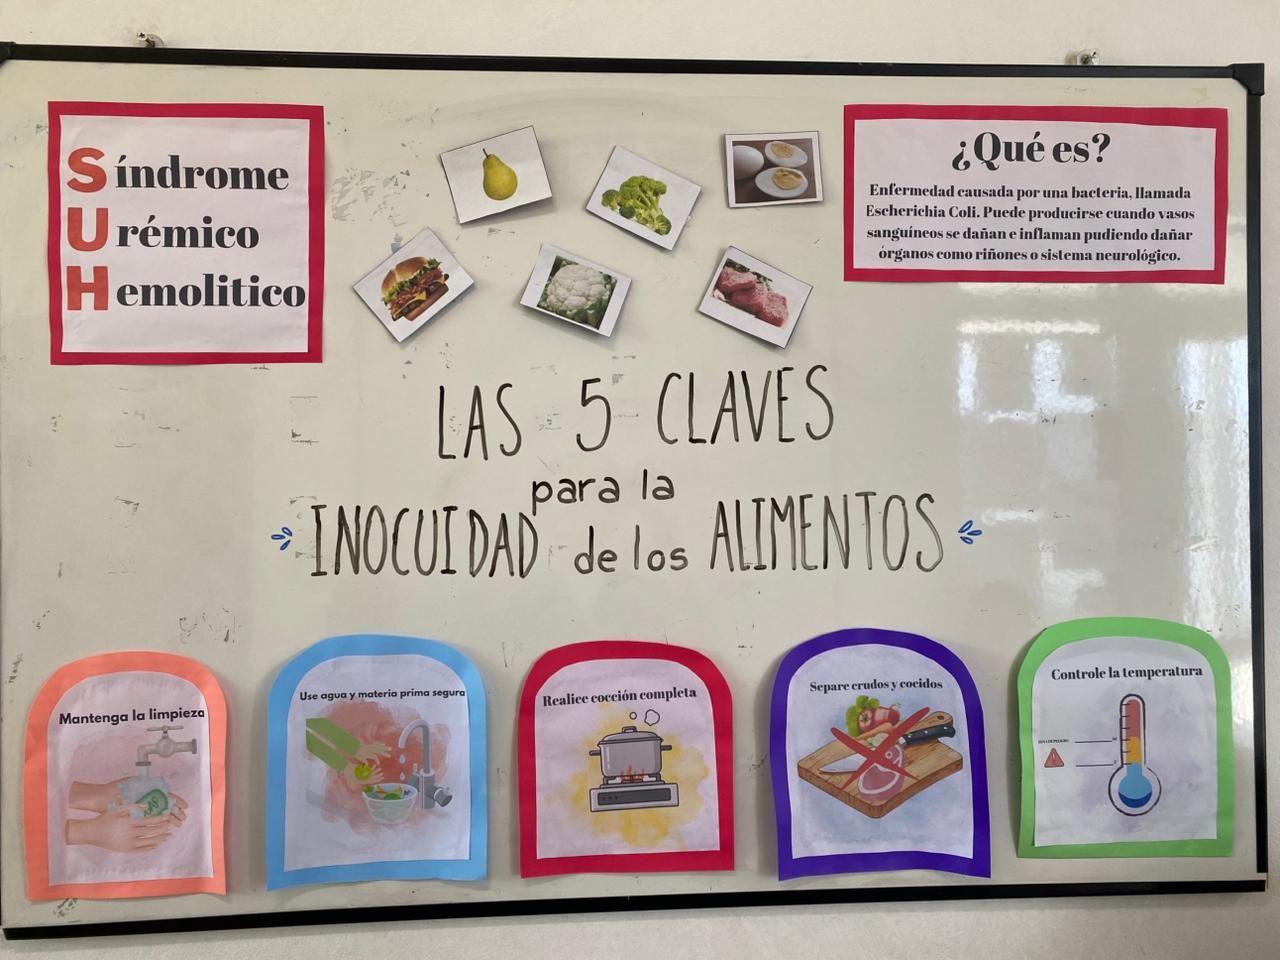 Síndrome
Urémico
Hemolitico
¿Qué es?
Enfermedad causada por una bacteria, llamada
Escherichia Coli. Puede producirse cuando vasos
sanguíneos se dañan e inflaman pudiendo dañar
órganos como riñones o sistema neurológico.
LAS 5 CLAVES
para la
INOCUIDAD de los ALIMENTOS
Mantenga la limpieza
Use agua y materia prima segura
Realice cocción completa
Separe crudos y cocidos
Controle la temperatura